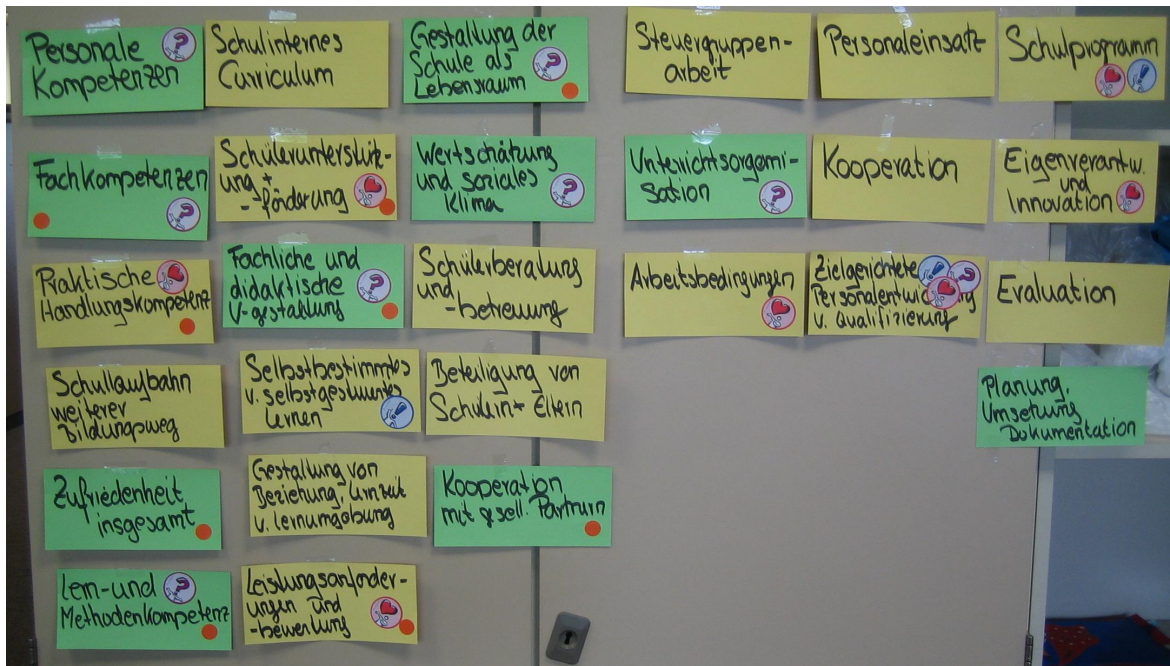 Personale
Kompetenzen
Fachkompetenzen
Praktische
Handlungskompetenz
Schullaufbahn
weiterer
Bildungsweg
Zufriedenheit
insgesamt
Lern- und
Methodenkompetenz
Schulinternes
Curriculum
Schülerunterstütz-
ung +
-förderung
Fachliche und
didaktische
U-gestaltung
Selbstbestimmtes
u. selbstgesteuertes
Lernen
Gestaltung von
Beziehung, Lernzeit
u. Lernumgebung
Leistungsanforder-
ungen und
-bewertung
Gestaltung der
Schule als
Lebensraum
Wertschätzung
und soziales
Klima
Schülerberatung
und
-betreuung
Beteiligung von
Schülern + Eltern
Kooperation
mit gesell. Partnern
Steuergruppen-
arbeit
Unterrichtsorgani-
sation
Arbeitsbedingungen
Personaleinsatz
Kooperation
Zielgerichtete
Personalentwicklung
u. Qualifizierung
Schulprogramm
Eigenverantw.
und
Innovation
Evaluation
Planung,
Umsetzung
Dokumentation